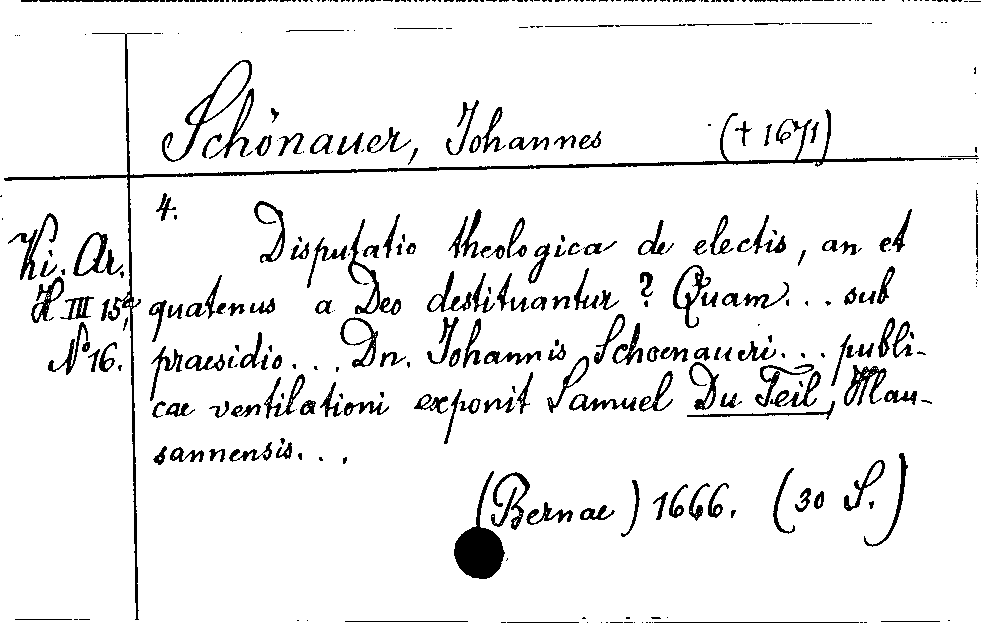 Schönauer, Johannes († 1671)
4.
Ki. Ar.
H III 15a,
No 16.
Disputatio theologica de electis, an et
quatenus a Deo destituantur? Quam... sub
praesidio... Dn. Johannis Schoenaueri... publi-
cae ventilationi exponit Samuel Du Teil, Mau-
sannensis...
(Bernae) 1666. (30 S.)